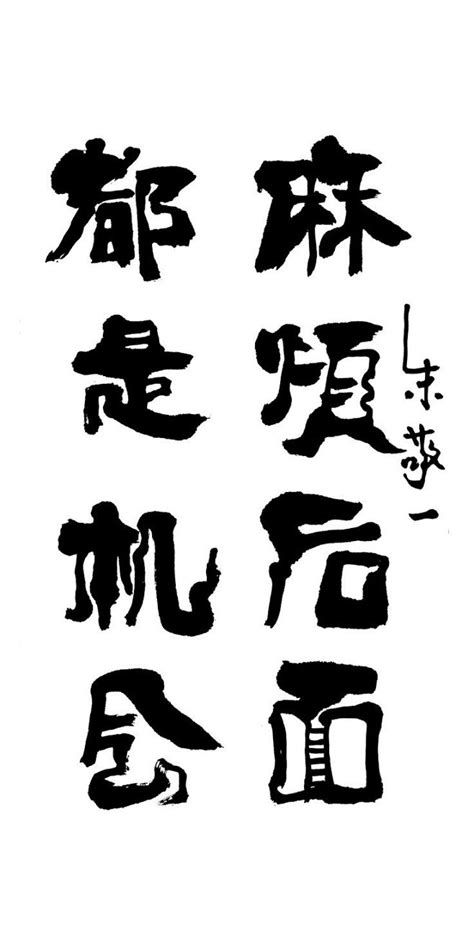 麻烦后面
都是机会
朱敬一